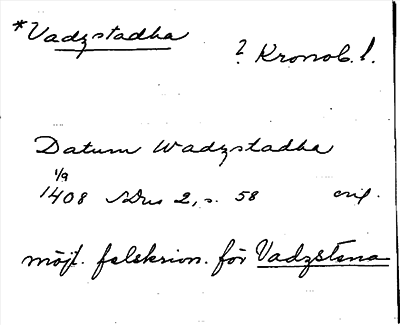 *Vadzstadha
? Kronob. l.
Datum Wadzstadha
1/9
1408 NDns 2, s. 58 orig.
möjl. felskrivn. för Vadzstena